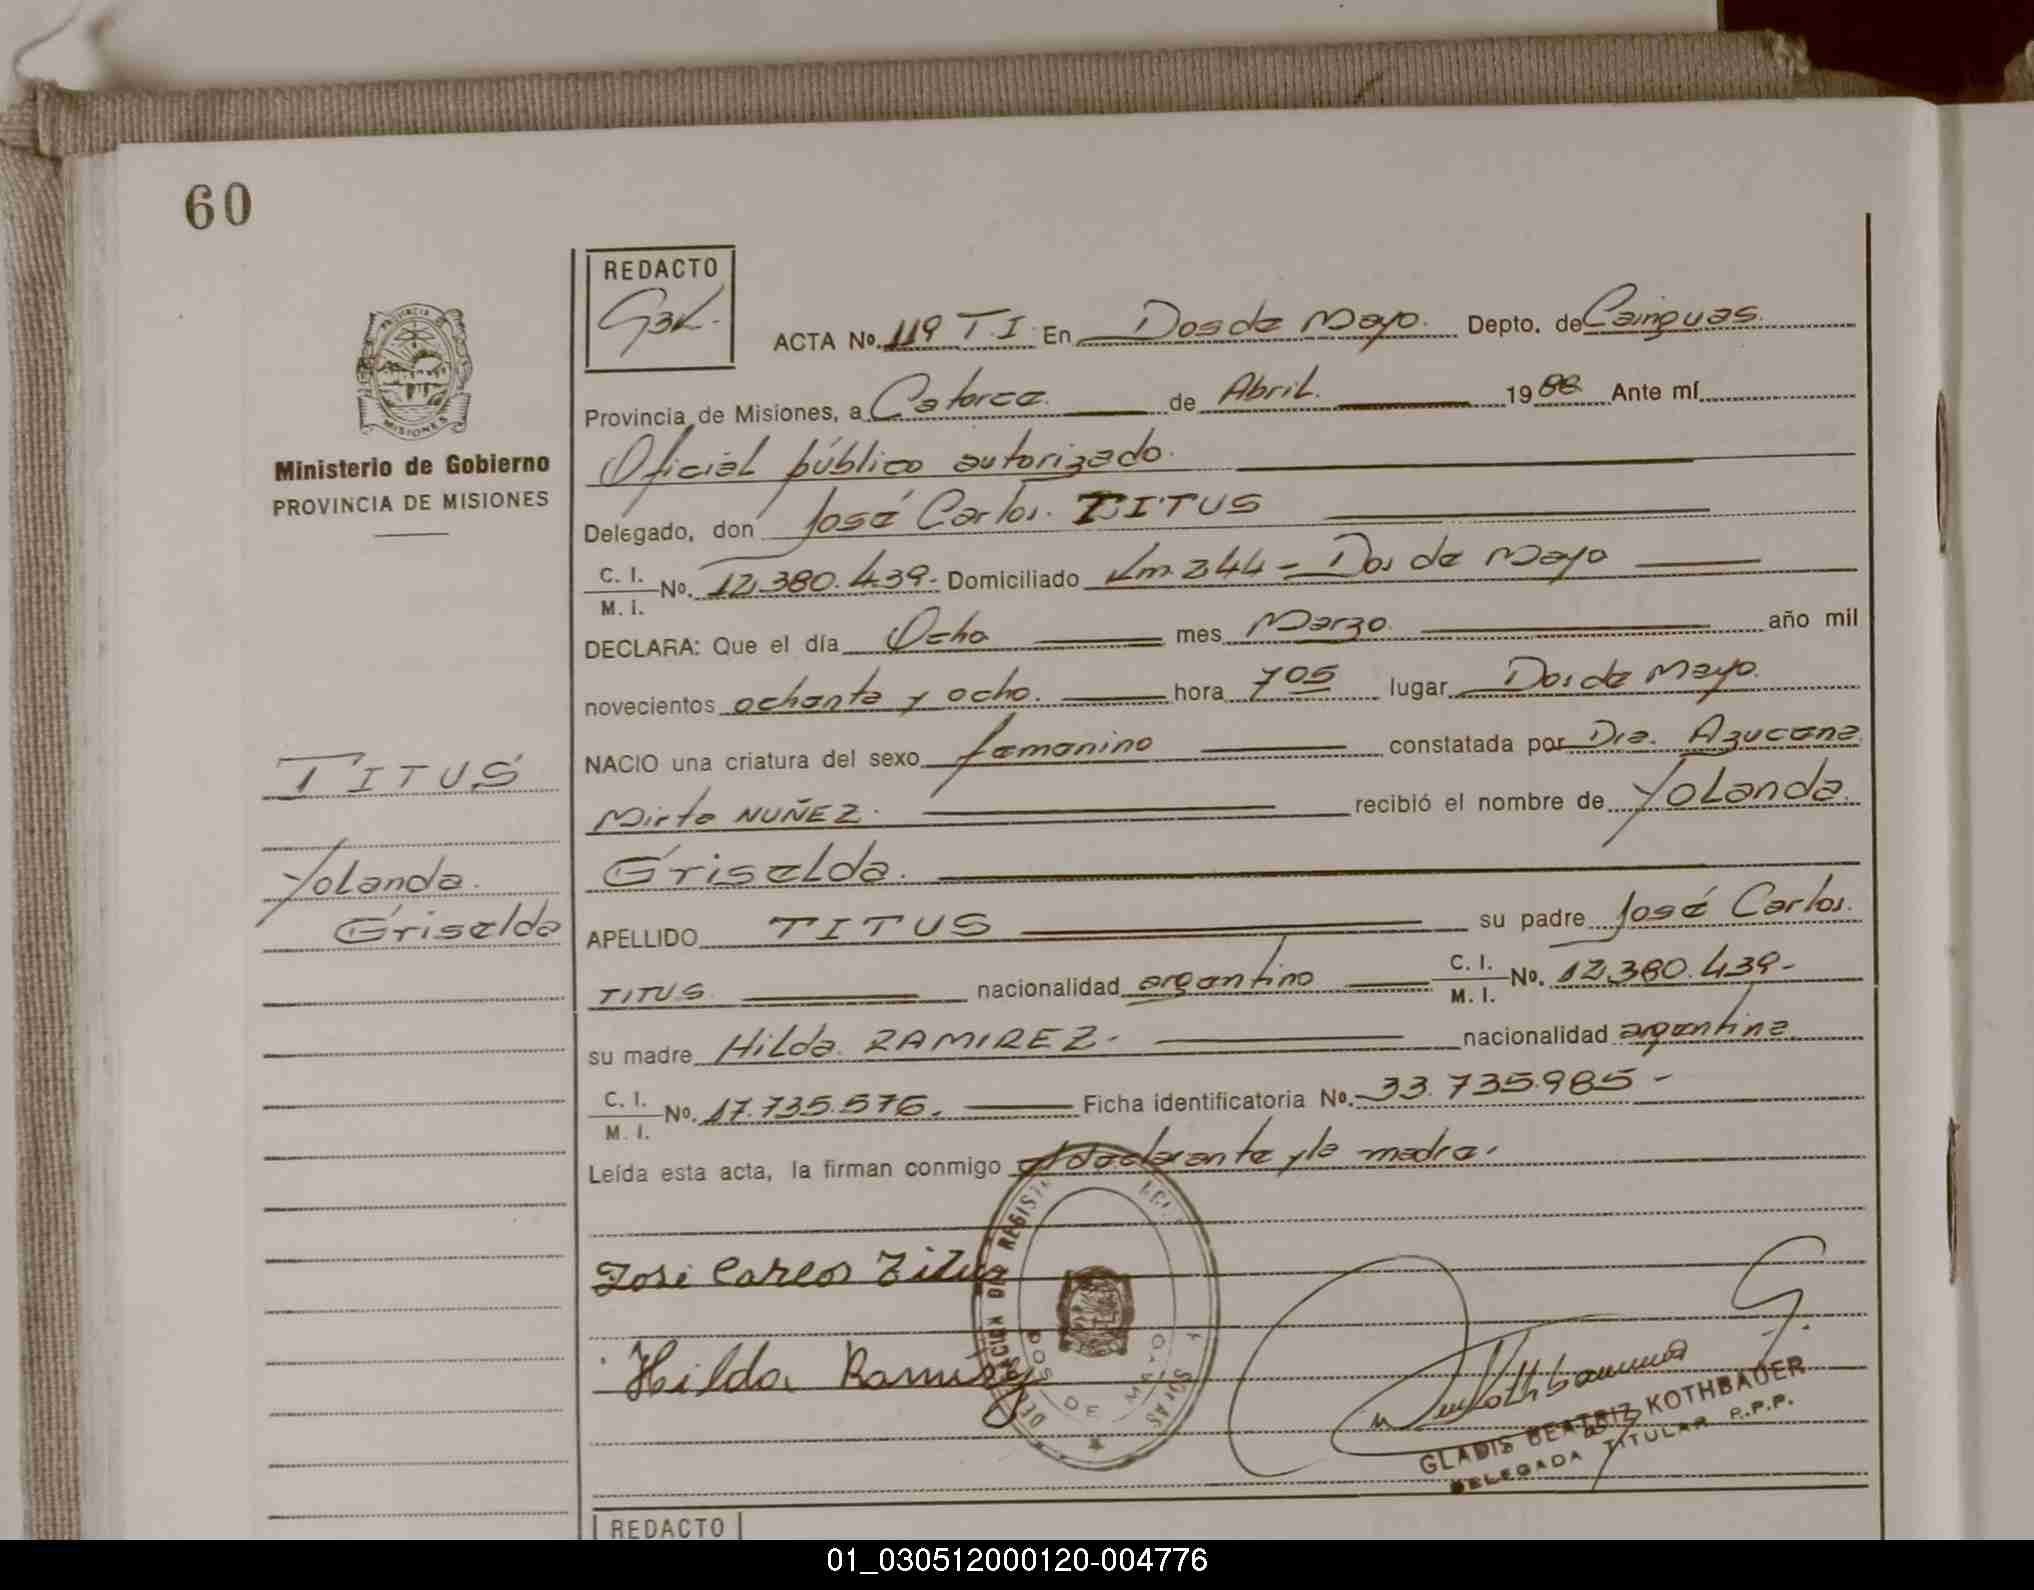 60
REDACTO
G3K.
ACTA Nº. 119 T.I. En Dos de Mayo. Depto. de Cainguas.
Provincia de Misiones, a Catorce. de Abril. 1988 Ante mí
Oficial público autorizado.
Delegado, don José Carlos. TITUS
C. I. / M. I. Nº. 12.380.439- Domiciliado Km. 244 - Dos de Mayo
DECLARA: Que el día Ocho mes Marzo. año mil
novecientos ochenta y ocho. hora 7 05 lugar Dos de Mayo.
NACIO una criatura del sexo femenino constatada por Dra. Azucena
Mirta NUÑEZ. recibió el nombre de Yolanda.
Griselda.
APELLIDO TITUS su padre José Carlos.
TITUS. nacionalidad argentino C. I. / M. I. Nº. 12.380.439-
su madre Hilda. RAMIREZ. nacionalidad argentina.
C. I. / M. I. Nº. 17.735.576. Ficha identificatoria Nº. 33.735.985-
Leída esta acta, la firman conmigo el declarante y la madre.
José Carlos Titus
Hilda Ramirez
DOS DE MAYO
GLADIS BEATRIZ KOTHBAUER
DELEGADA TITULAR P.P.P.
PROVINCIA DE
MISIONES
Ministerio de Gobierno
PROVINCIA DE MISIONES
TITUS
Yolanda.
Griselda
REDACTO
01_030512000120-004776